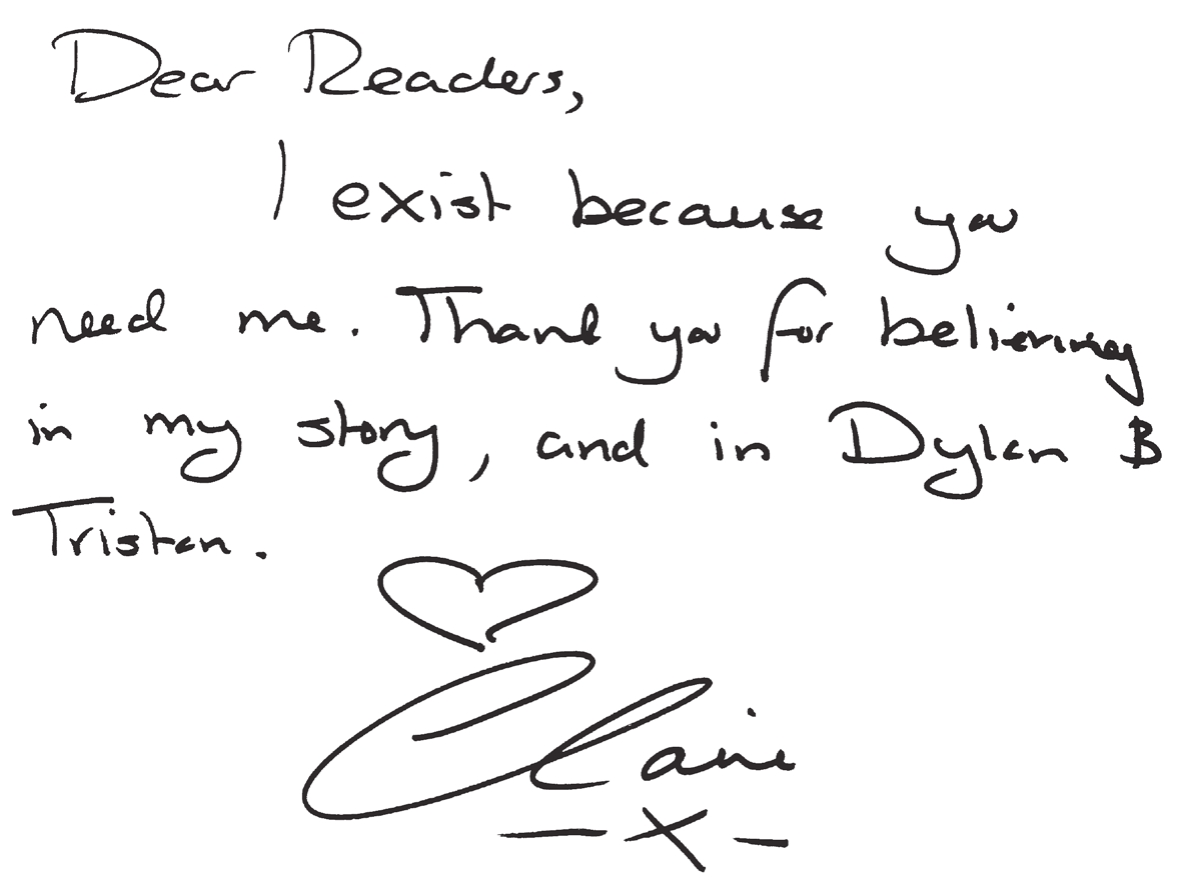 Dear Readers,
I exist because you
need me. Thank you for believing
in my story, and in Dylan &
Tristan.
Claire
-X-